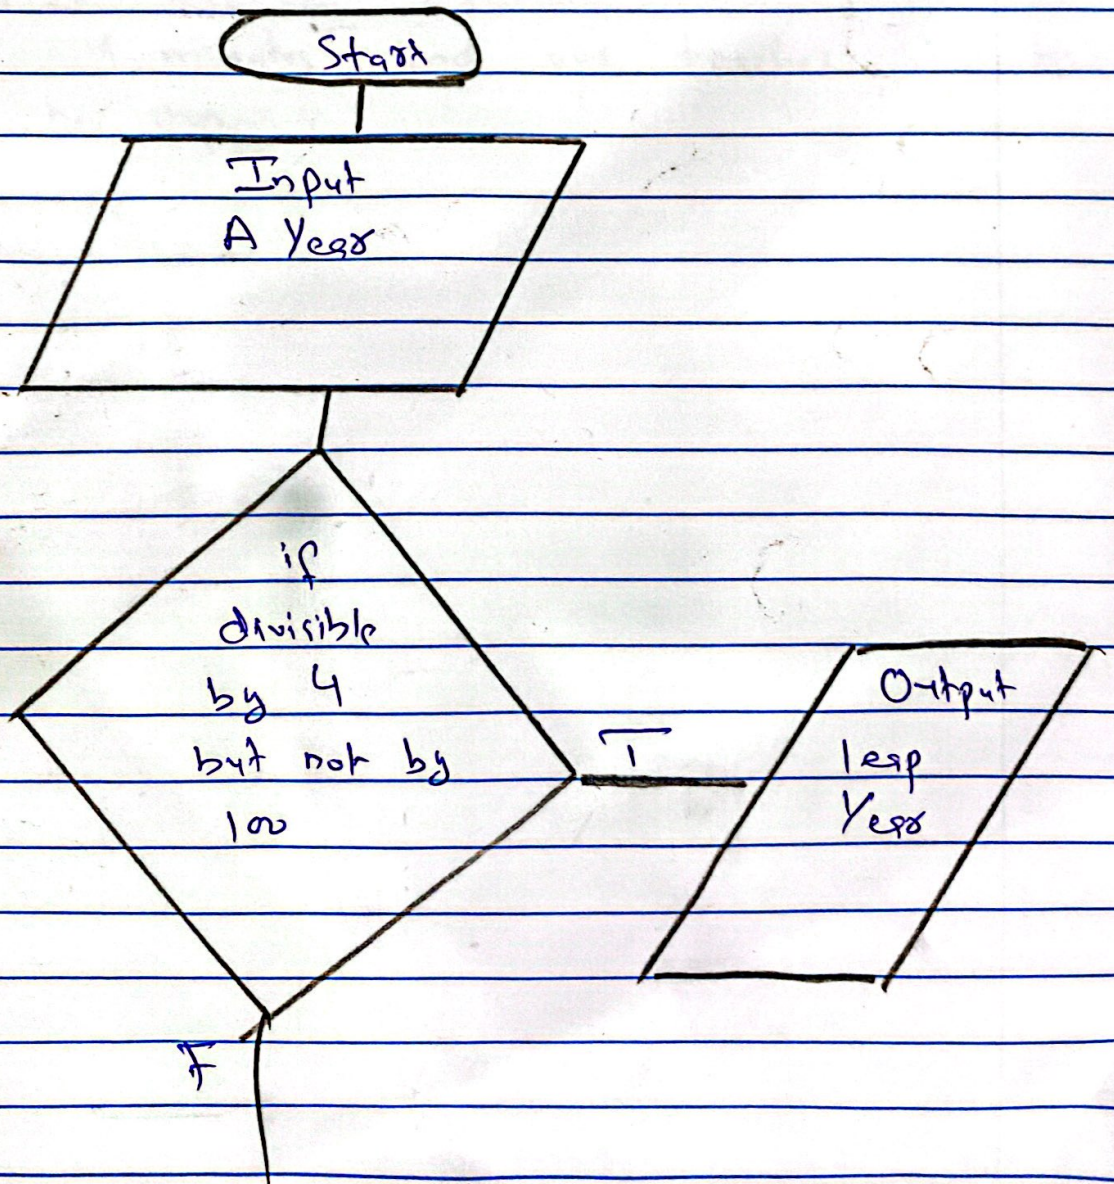 Start
Input
A Year
if
divisible
by 4
but not by
100
T
Output
leap
Year
F